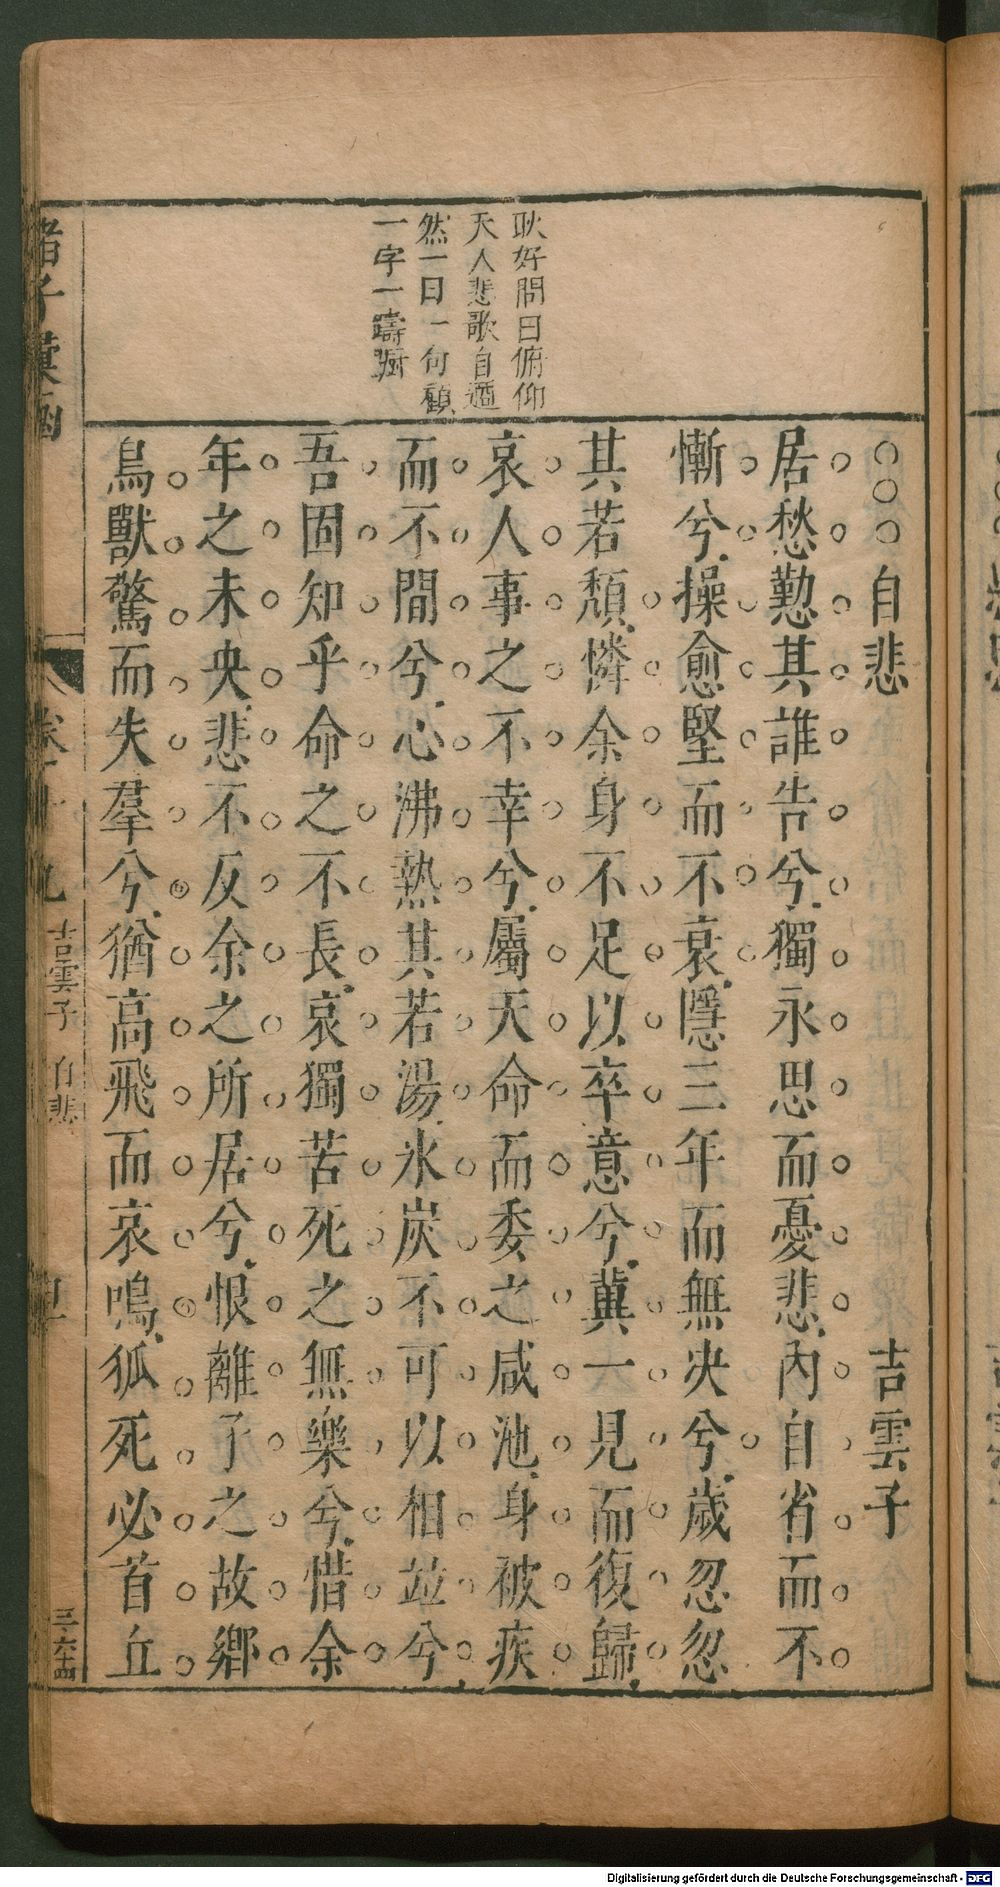 耿好問曰俯仰
天人悲歌自遒
然一日一句顧
一字一躊蹰
○○○自悲 吉雲子
居愁懃其誰告兮獨永思而憂悲內自省而不
慚兮操愈堅而不衰隱三年而無決兮歲忽忽
其若頹憐余身不足以卒意兮冀一見而復歸
哀人事之不幸兮屬天命而委之咸池身被疾
而不閒兮心沸熱其若湯氷炭不可以相竝兮
吾固知乎命之不長哀獨苦死之無樂兮惜余
年之未央悲不反余之所居兮恨離予之故鄉
鳥獸驚而失羣兮猶高飛而哀鳴狐死必首丘
諸子彙函 卷十九 吉雲子 自悲 三六十四
Digitalisierung gefördert durch die Deutsche Forschungsgemeinschaft - DFG